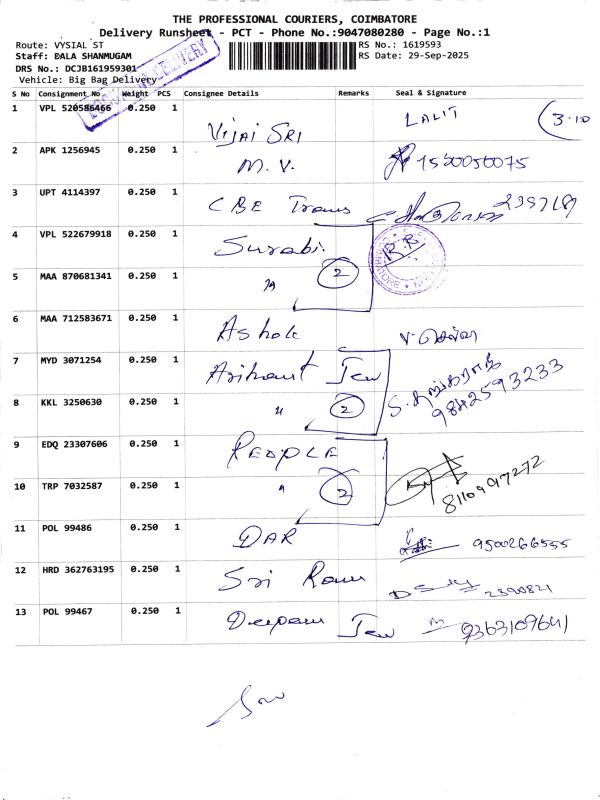 THE PROFESSIONAL COURIERS, COIMBATORE
Delivery Runsheet - PCT - Phone No.:9047080280 - Page No.:1
Route: VYSIAL ST RS No.: 1619593
Staff: BALA SHANMUGAM RS Date: 29-Sep-2025
DRS No.: DCJB161959301
Vehicle: Big Bag Delivery
S No Consignment No Weight PCS Consignee Details Remarks Seal & Signature
1 VPL 520586466 0.250 1 Vijai Sri LALIT 3.10
2 APK 1256945 0.250 1 M.V.
3 UPT 4114397 0.250 1 CBE Trans
4 VPL 522679918 0.250 1 Surabi
5 MAA 870681341 0.250 1 " 2
6 MAA 712583671 0.250 1 Ashok
7 MYD 3071254 0.250 1 Arihant Jew
8 KKL 3250630 0.250 1 " 2 9842593233
9 EDQ 23307606 0.250 1 PEOPLE
10 TRP 7032587 0.250 1 " 2 8110997272
11 POL 99486 0.250 1 DAR 9500266555
12 HRD 362763195 0.250 1 Sri Ram 2390821
13 POL 99467 0.250 1 Deepam Jew 9363109641